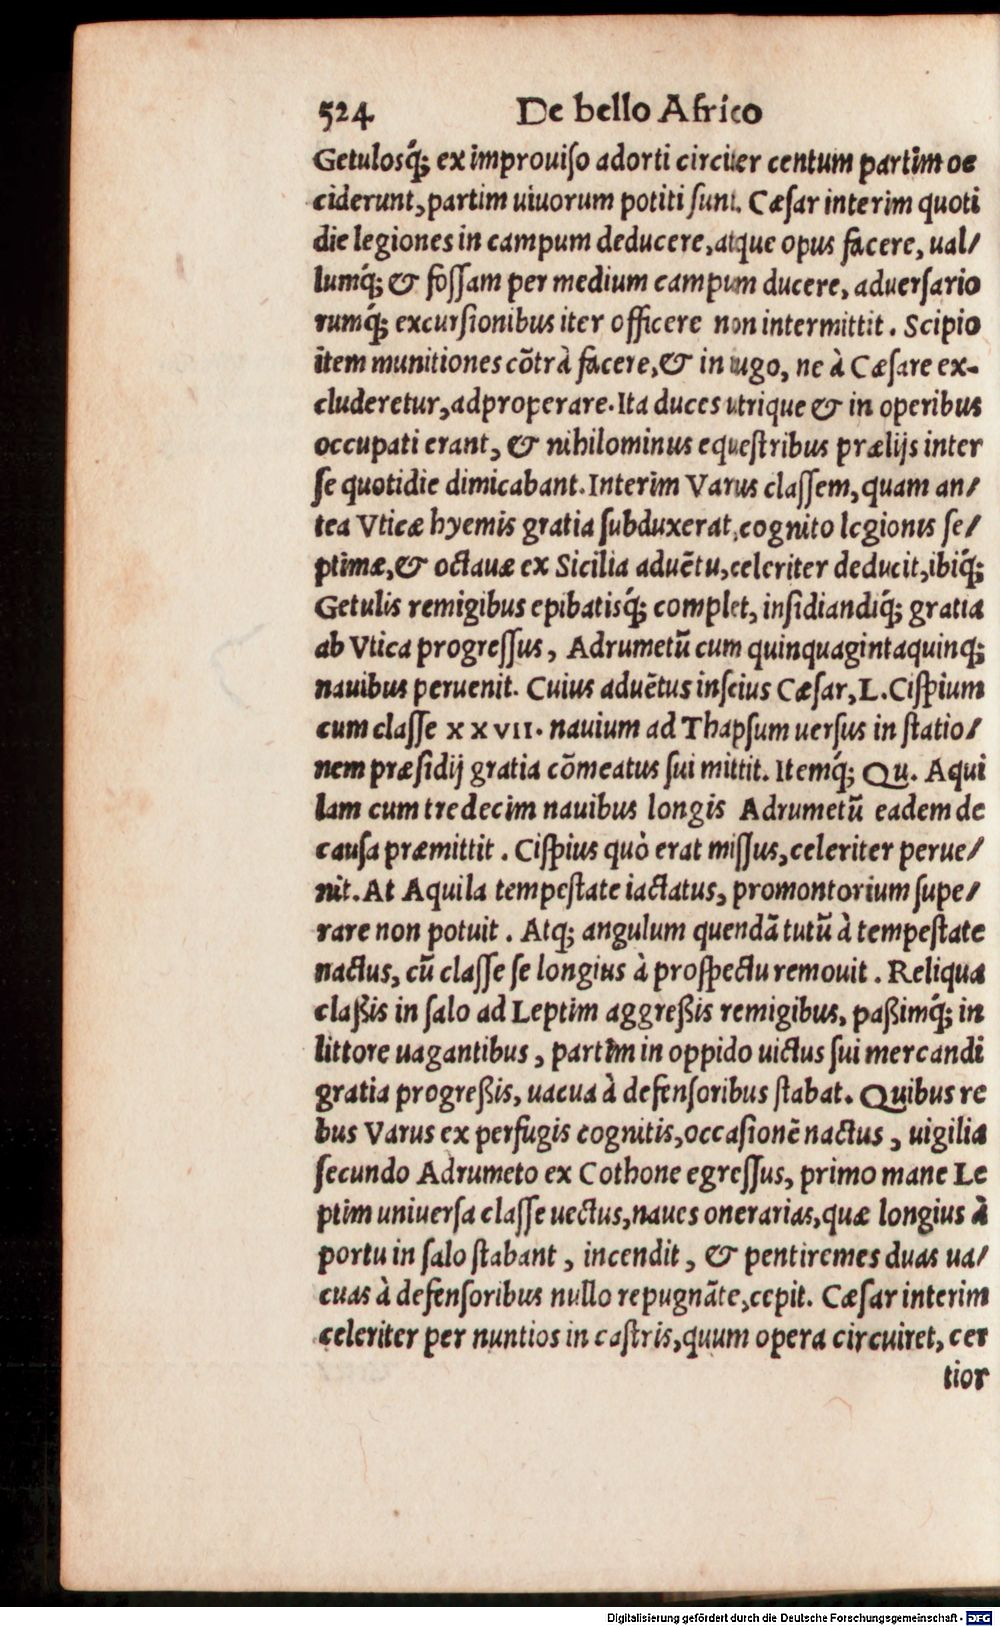 524 De bello Africo
Getulosq́; ex improuiſo adorti circiter centum partim oc
ciderunt, partim uiuorum potiti ſunt. Cæſar interim quoti
die legiones in campum deducere, atque opus facere, ual/
lumq́; & foſſam per medium campum ducere, aduerſario
rumq́; excurſionibus iter officere non intermittit. Scipio
item munitiones cõtrà facere, & in iugo, ne à Cæſare ex-
cluderetur, adproperare. Ita duces utrique & in operibus
occupati erant, & nihilominus equeſtribus prælijs inter
ſe quotidie dimicabant. Interim Varus claſſem, quam an/
tea Vticæ hyemis gratia ſubduxerat, cognito legionis ſe/
ptimæ, & octauæ ex Sicilia aduẽtu, celeriter deducit, ibiq́;
Getulis remigibus epibatisq́; complet, inſidiandiq́; gratia
ab Vtica progreſſus, Adrumetũ cum quinquagintaquinq;
nauibus peruenit. Cuius aduẽtus inſcius Cæſar, L. Ciſpium
cum claſſe XXVII. nauium ad Thapſum uerſus in ſtatio/
nem præſidij gratia cõmeatus ſui mittit. Itemq́; Qu. Aqui
lam cum tredecim nauibus longis Adrumetũ eadem de
cauſa præmittit. Ciſpius quò erat miſſus, celeriter perue/
nit. At Aquila tempeſtate iactatus, promontorium ſupe/
rare non potuit. Atq; angulum quendã tutũ à tempeſtate
nactus, cũ claſſe ſe longius à proſpectu remouit. Reliqua
claßis in ſalo ad Leptim aggreßis remigibus, paßimq́; in
littore uagantibus, partim in oppido uictus ſui mercandi
gratia progreßis, uacua à defenſoribus ſtabat. Quibus re
bus Varus ex perfugis cognitis, occaſionẽ nactus, uigilia
ſecundo Adrumeto ex Cothone egreſſus, primo mane Le
ptim uniuerſa claſſe uectus, naues onerarias, quæ longius à
portu in ſalo ſtabant, incendit, & pentiremes duas ua/
cuas à defenſoribus nullo repugnãte, cepit. Cæſar interim
celeriter per nuntios in caſtris, quum opera circuiret, cer
tior
Digitalisierung gefördert durch die Deutsche Forschungsgemeinschaft - DFG